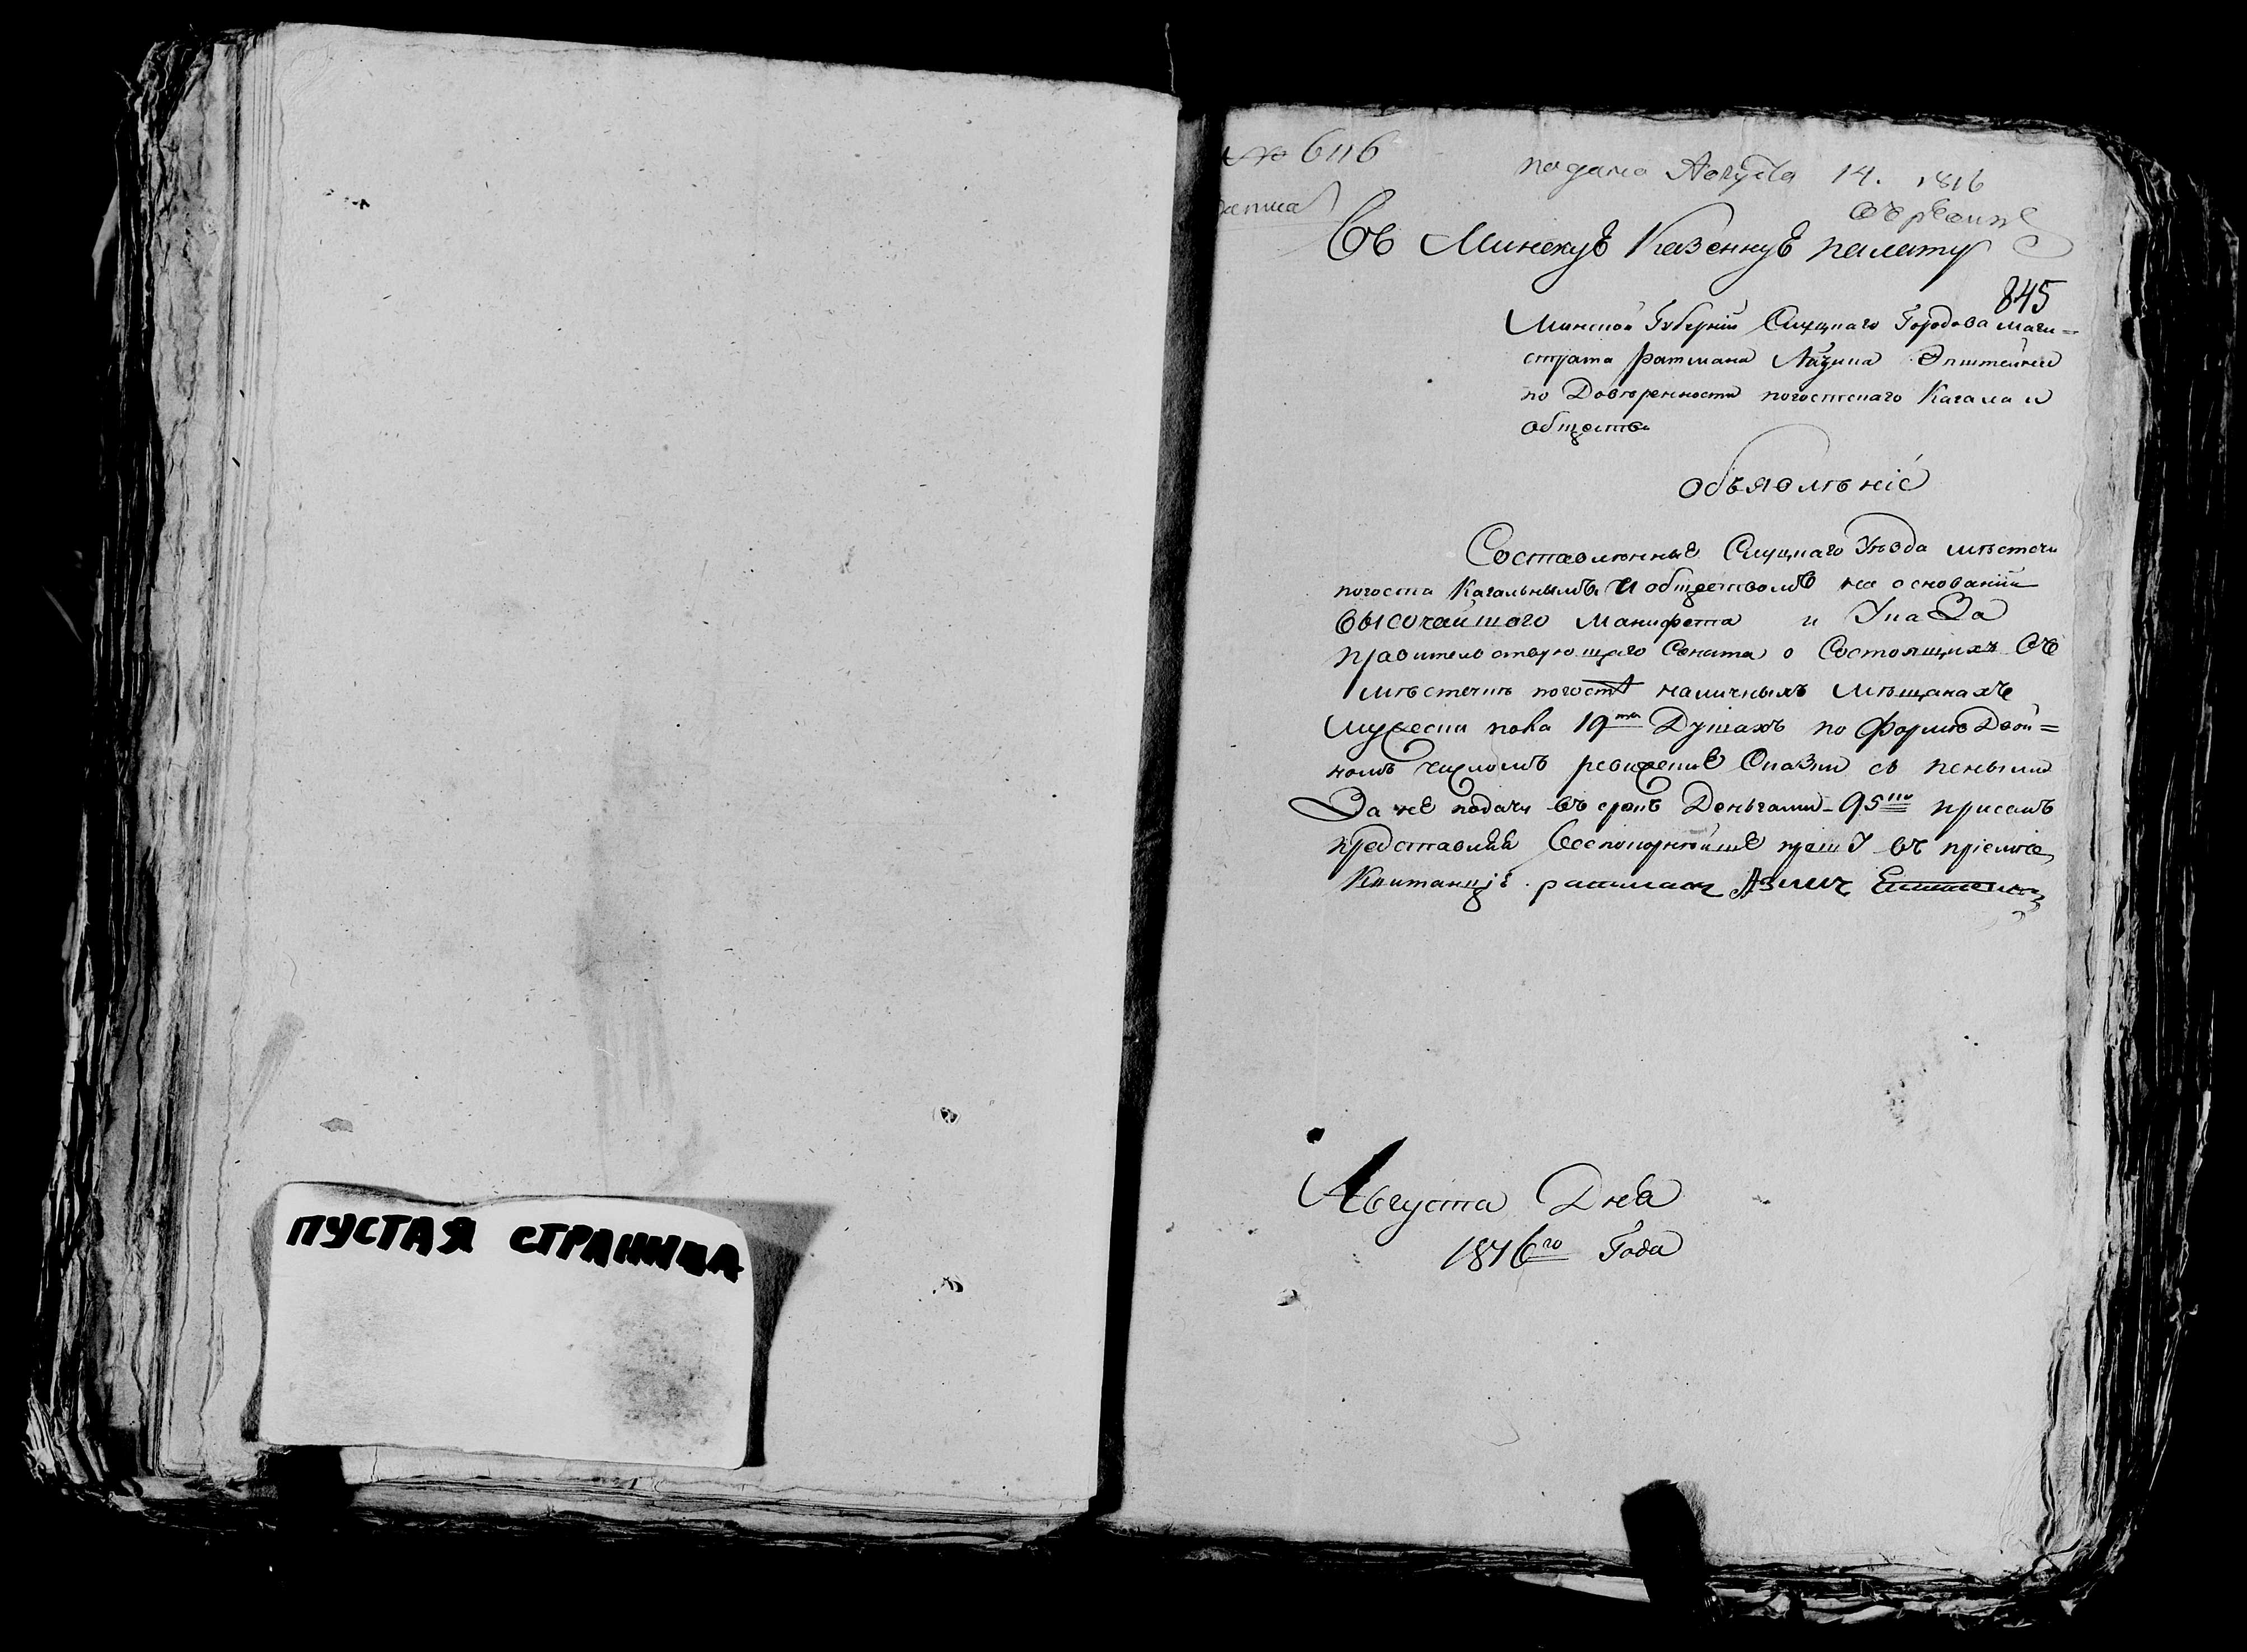 ПУСТАЯ СТРАНИЦА
№ 6116
подано Августа 14. 1816
Въ Минскую Казенную палату
845
Минской Губернии Слуцкаго Городова маги=
страта ратмана Айзика Эпштейна
по Довѣренности погостскаго Кагала и
общества
Объявлѣніе
Составлѣнные Слуцкаго Уѣзда мѣстечка
погоста Кагальнымъ и обществомъ на основании
Высочайшаго Манифеста и Указа
правительствующаго Сената о Состоящихъ въ
мѣстечкѣ погостѣ наличныхъ мѣщанахъ
мужеска пола 19ти Душахъ по формѣ Двой=
номъ числомъ ревизские Сказки съ пеньыми
За не подачу въ срокъ Деньгами 95ю при семъ
представляя всепокорнейше прошу въ приеме
Квитанции. ратманъ
Августа Дня
1816го Года